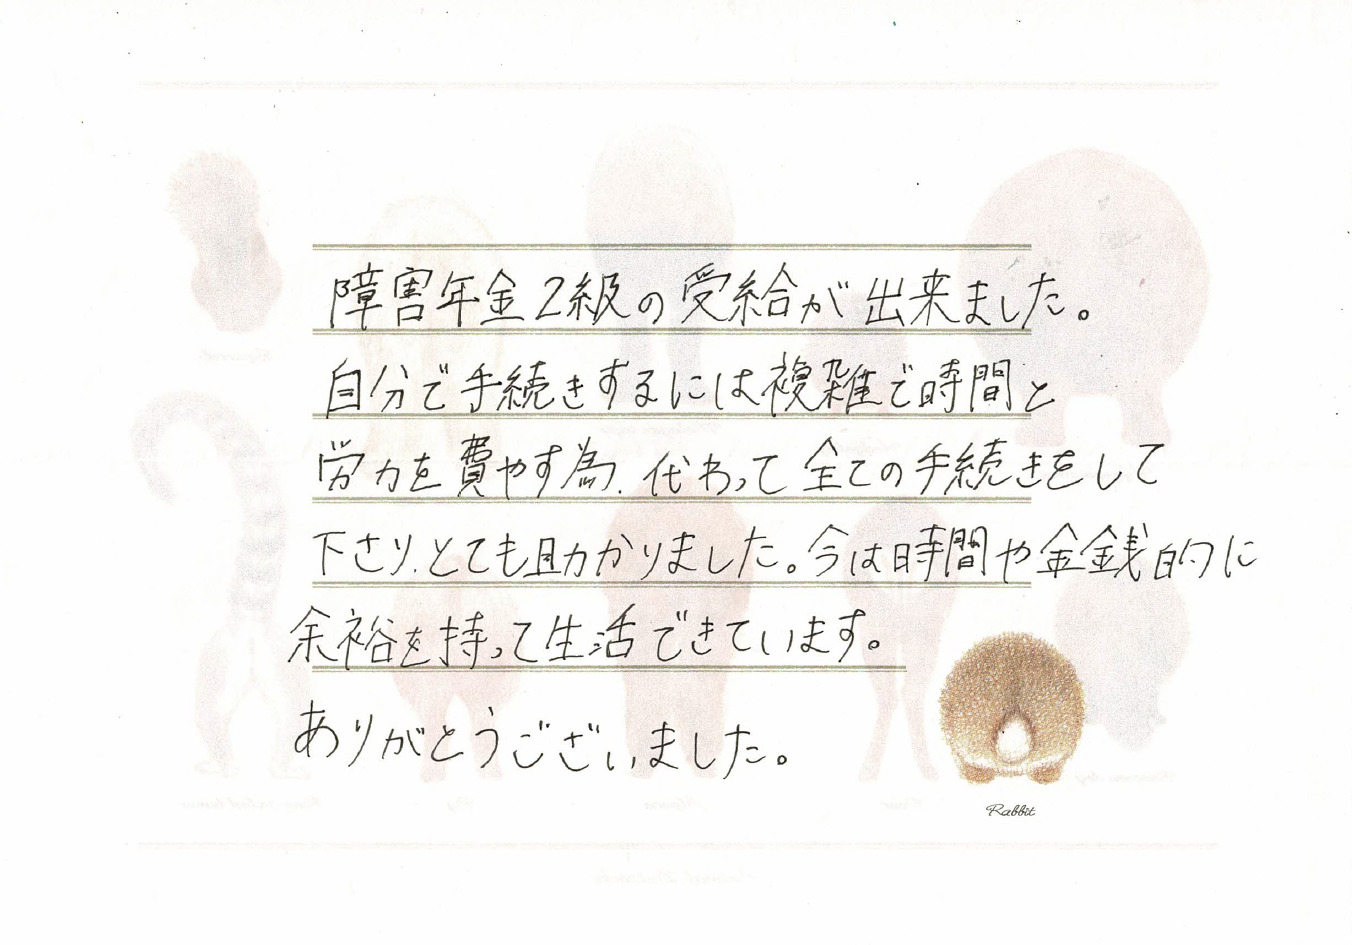 障害年金2級の受給が出来ました。
自分で手続きするには複雑で時間と
労力を費やす為、代わって全ての手続きをして
下さり、とても助かりました。今は時間や金銭的に
余裕を持って生活できています。
ありがとうございました。
Rabbit